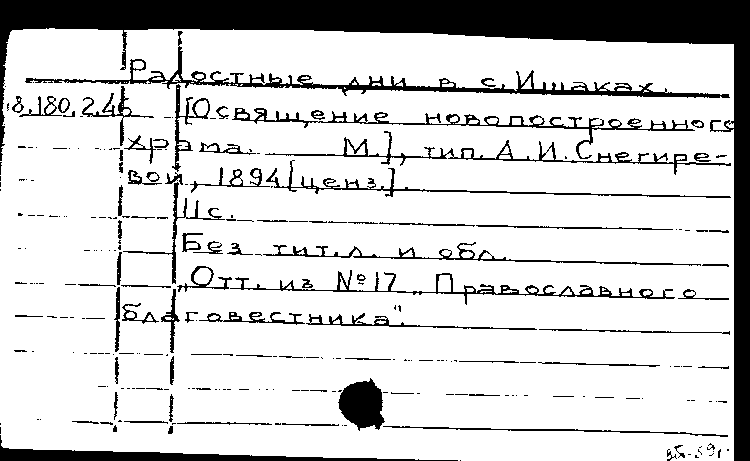 Радостные дни в с. Ишаках.
8.180.2.46 [Освящение новопостроенного
храма. М.], тип. А.И. Снегире-
вой, 1894 [ценз.].
11с.
Без тит.л. и обл.
„Отт. из №17 „Православного
благовестника".